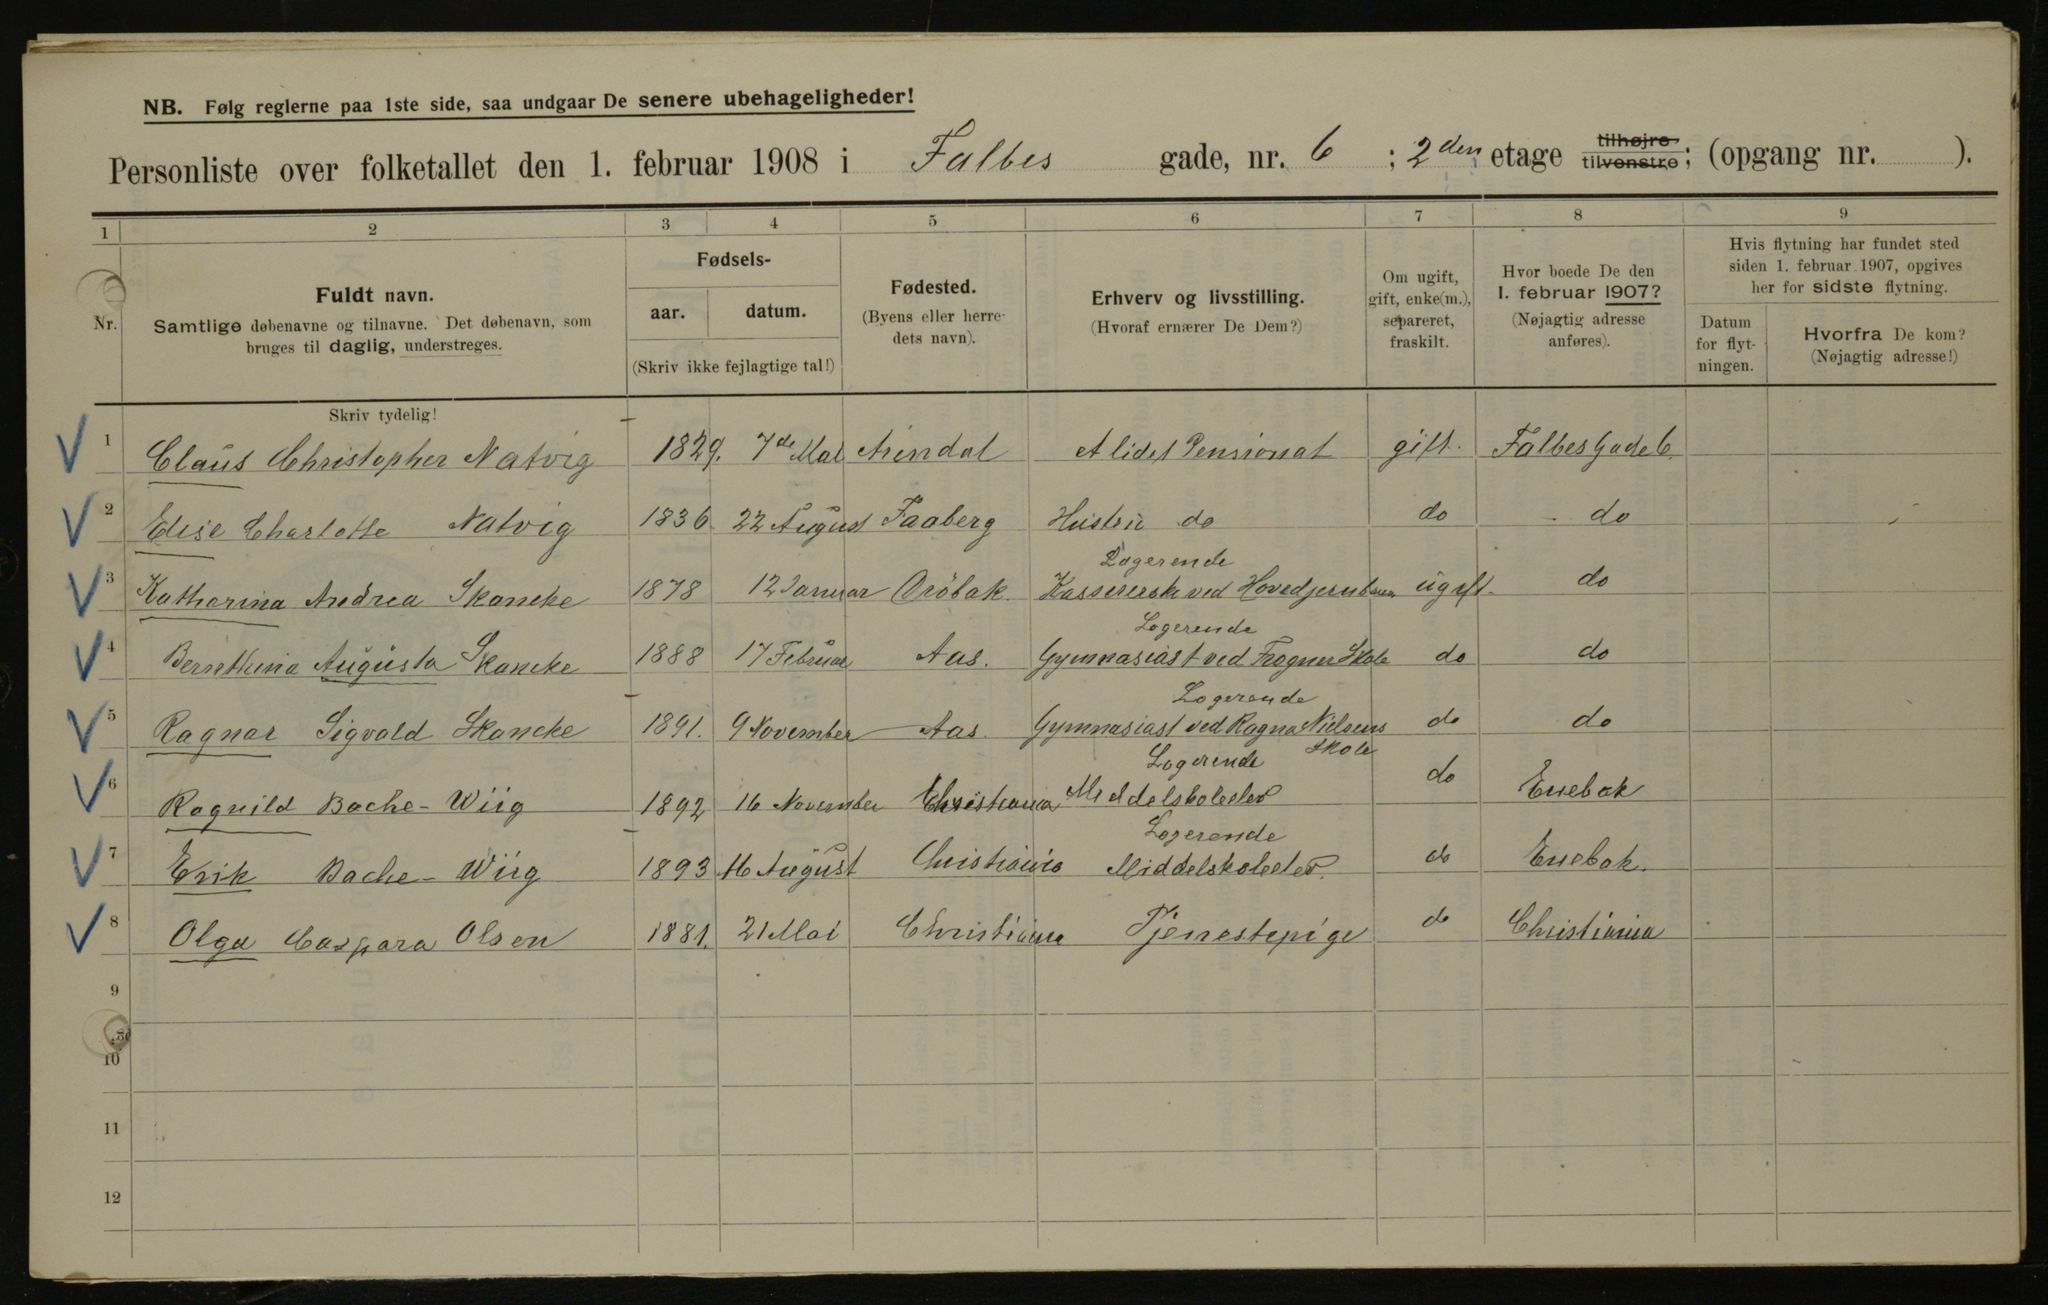 NB. Følg reglerne paa 1ste side, saa undgaar De senere ubehageligheder!
Personliste over folketallet den 1. februar 1908 i Falbes gade, nr. 6 ; 2den etage tilhøjre tilvenstre; (opgang nr. ).
1 2 3 4 5 6 7 8 9
Nr.
Fuldt navn.
Samtlige døbenavne og tilnavne. Det døbenavn, som
bruges til daglig, understreges.
Skriv tydelig!
Fødsels-
aar. datum.
(Skriv ikke fejlagtige tal!)
Fødested.
(Byens eller herre-
dets navn).
Erhverv og livsstilling.
(Hvoraf ernærer De Dem?)
Om ugift,
gift, enke(m.),
separeret,
fraskilt.
Hvor boede De den
1. februar 1907?
(Nøjagtig adresse
anføres).
Hvis flytning har fundet sted
siden 1. februar 1907, opgives
her for sidste flytning.
Datum
for flyt-
ningen.
Hvorfra De kom?
(Nøjagtig adresse!)
1 Claus Christopher Natvig 1829. 7de Mai Arendal Alidet Pensionat gift. Falbes Gade 6.
2 Elise Charlotte Natvig 1836 22 August Faaberg Hustru do do do
Logerende
3 Katharina Andrea Skancke 1878 12 Januar Dröbak. Kassererske ved Hovedjernbanen ugift. do
Logerende
4 Bernthina Augusta Skancke 1888 17 Februar Aas. Gymnasiast ved Frogner Skole do do
Logerende
5 Ragnar Sigvald Skancke 1891. 9 November Aas. Gymnasiast ved Ragna Nielsens do do
Skole
Logerende
6 Ragnild Bache-Wiig 1892 16 November Christiania Middelskoleelev do Enebak
Logerende
7 Erik Bache-Wiig 1893 16 August Christiania Middelskoleelev. do Enebak.
8 Olga Caspara Olsen 1881. 21 Mai Christiania Tjenestepige do Christiania
9
10
11
12